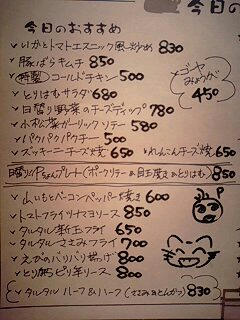 今日のおすすめ
いかとトマトエスニック風炒め 830
豚ばらキムチ 850
特製 コールドチキン 500
とりはむサラダ 680
日替り野菜のチーズディップ 780
小松菜ガーリックソテー 580
パクパクパクチー 500
ズッキーニチーズ焼 650 れんこんチーズ焼 650
ゴーヤ
みょうが
450
日替りPちゃんプレート(ポークソテー&目玉焼き&とりはむ) 850
山いもとベーコンペッパー焼き 600
トマトフライツナマヨソース 850
タルタル新玉フライ 650
タルタルささみフライ 700
えびのパリパリ揚げ 800
とり鍋ピリ辛ソース 800
タルタル ハーフ&ハーフ(ささみ&とんかつ) 830
今日の